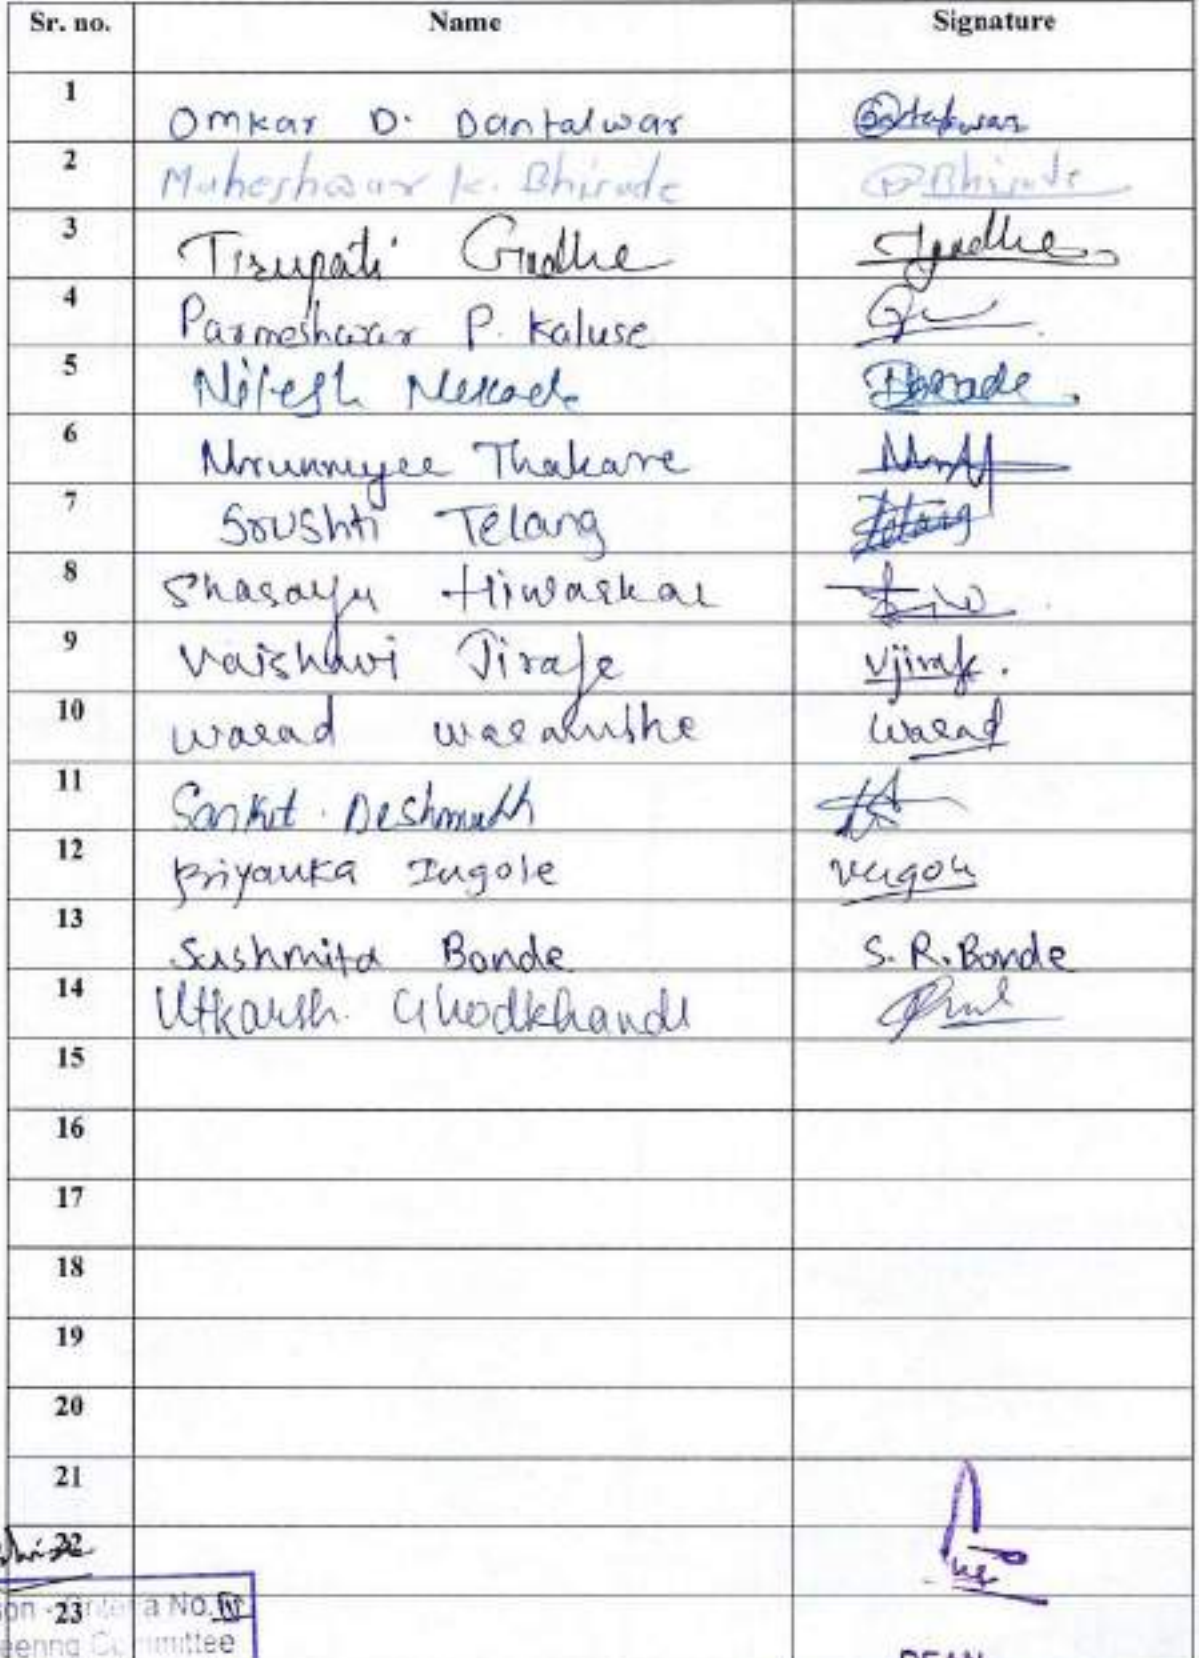 Sr. no. Name Signature
1 Omkar D. Dantalwar Dantalwar
2 Maheshwar K. Bhirade Bhirade
3 Tirupati Gudhe Tgudhe
4 Parmeshwar P. Kaluse
5 Nilesh Nekade
6 Mrunmyee Thakare
7 Srushti Telang Telang
8 Shasayu Hiwaskar
9 Vaishavi Jirafe Vjirafe.
10 Warad Warambhe Warad
11 Sanket Deshmukh
12 Priyanka Ingole
13 Sushmita Bonde S. R. Bonde
14 Utkarsh Ghodkhande
15
16
17
18
19
20
21
22
23 a No. IV
Committee
DEAN